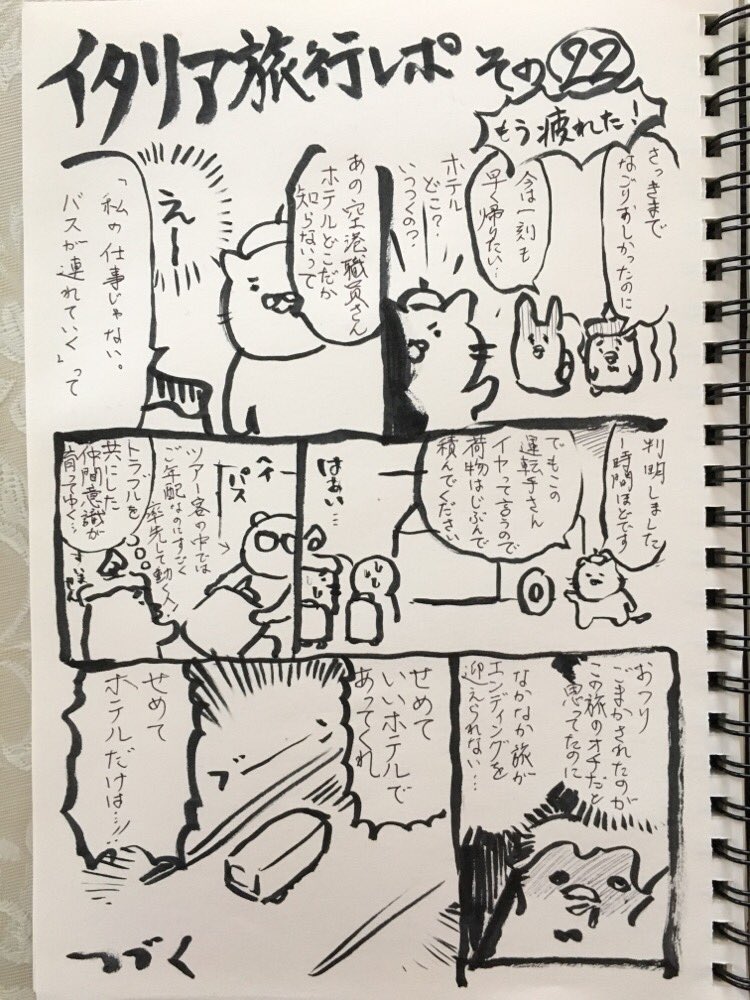 イタリア旅行レポ その22
もう疲れた！
さっきまで
なごりおしかったのに
今は一刻も
早く帰りたい…
ホテル
どこ？
いつつくの？
あの空港職員さん
ホテルどこだか
知らないって
えー
「私の仕事じゃない。
バスが連れていく」って
判明しました
1時間ほどです
でもこの
運転手さん
イヤって言うので
荷物はじぶんで
積んでください
はぁい…
ヘイ
パス
ツアー客の中では
ご年配なのにすごく
率先して動く人！
トラブルを
共にした
仲間意識が
育ってゆく…
おつり
ごまかされたのが
この旅のオチだと
思ってたのに
なかなか旅が
エンディングを
迎えられない…
せめて
いいホテルで
あってくれ
せめて
ホテルだけは…!!
つづく